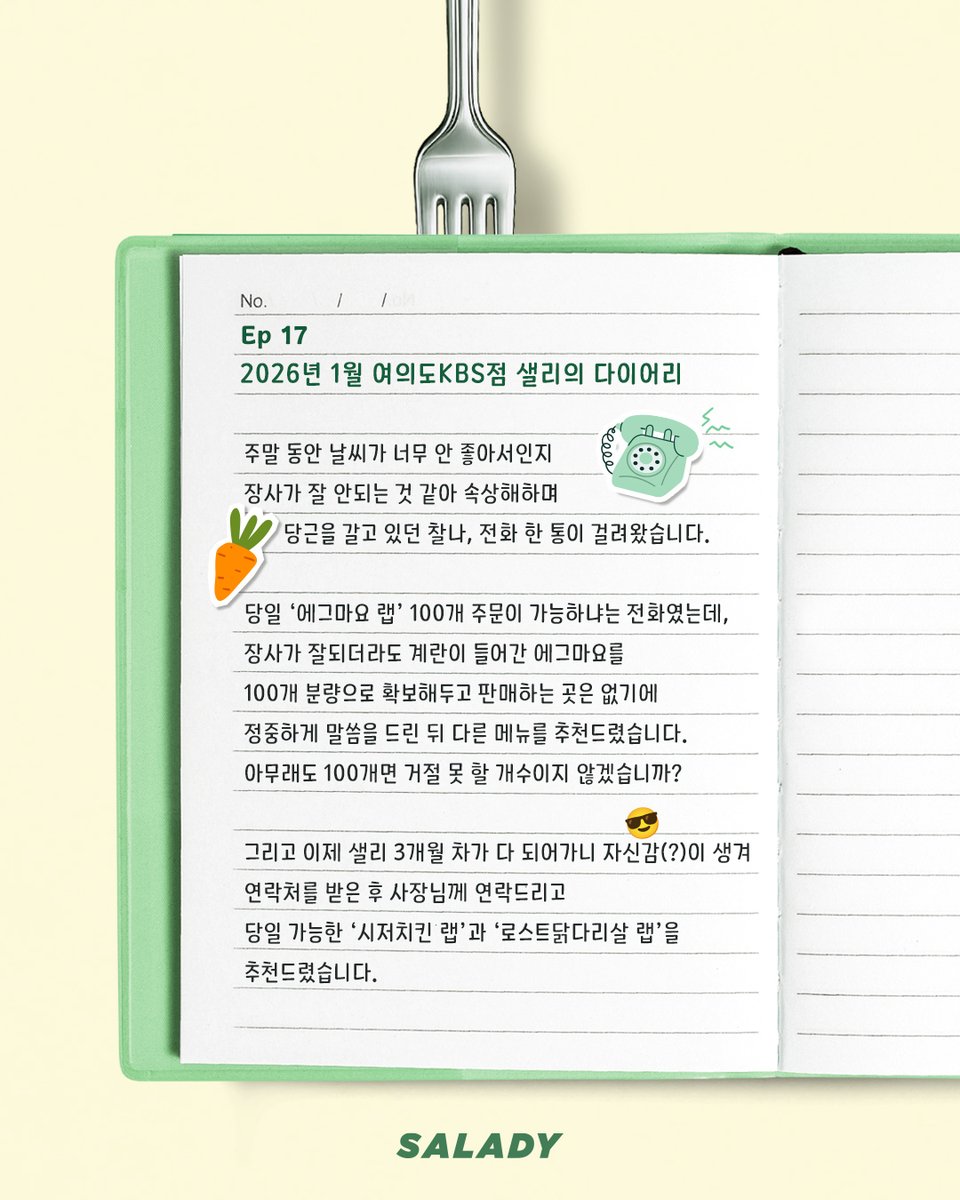 No. / /
Ep 17
2026년 1월 여의도KBS점 샐리의 다이어리
주말 동안 날씨가 너무 안 좋아서인지
장사가 잘 안되는 것 같아 속상해하며
당근을 갈고 있던 찰나, 전화 한 통이 걸려왔습니다.
당일 ‘에그마요 랩’ 100개 주문이 가능하냐는 전화였는데,
장사가 잘되더라도 계란이 들어간 에그마요를
100개 분량으로 확보해두고 판매하는 곳은 없기에
정중하게 말씀을 드린 뒤 다른 메뉴를 추천드렸습니다.
아무래도 100개면 거절 못 할 개수이지 않겠습니까?
그리고 이제 샐리 3개월 차가 다 되어가니 자신감(?)이 생겨
연락처를 받은 후 사장님께 연락드리고
당일 가능한 ‘시저치킨 랩’과 ‘로스트닭다리살 랩’을
추천드렸습니다.
SALADY